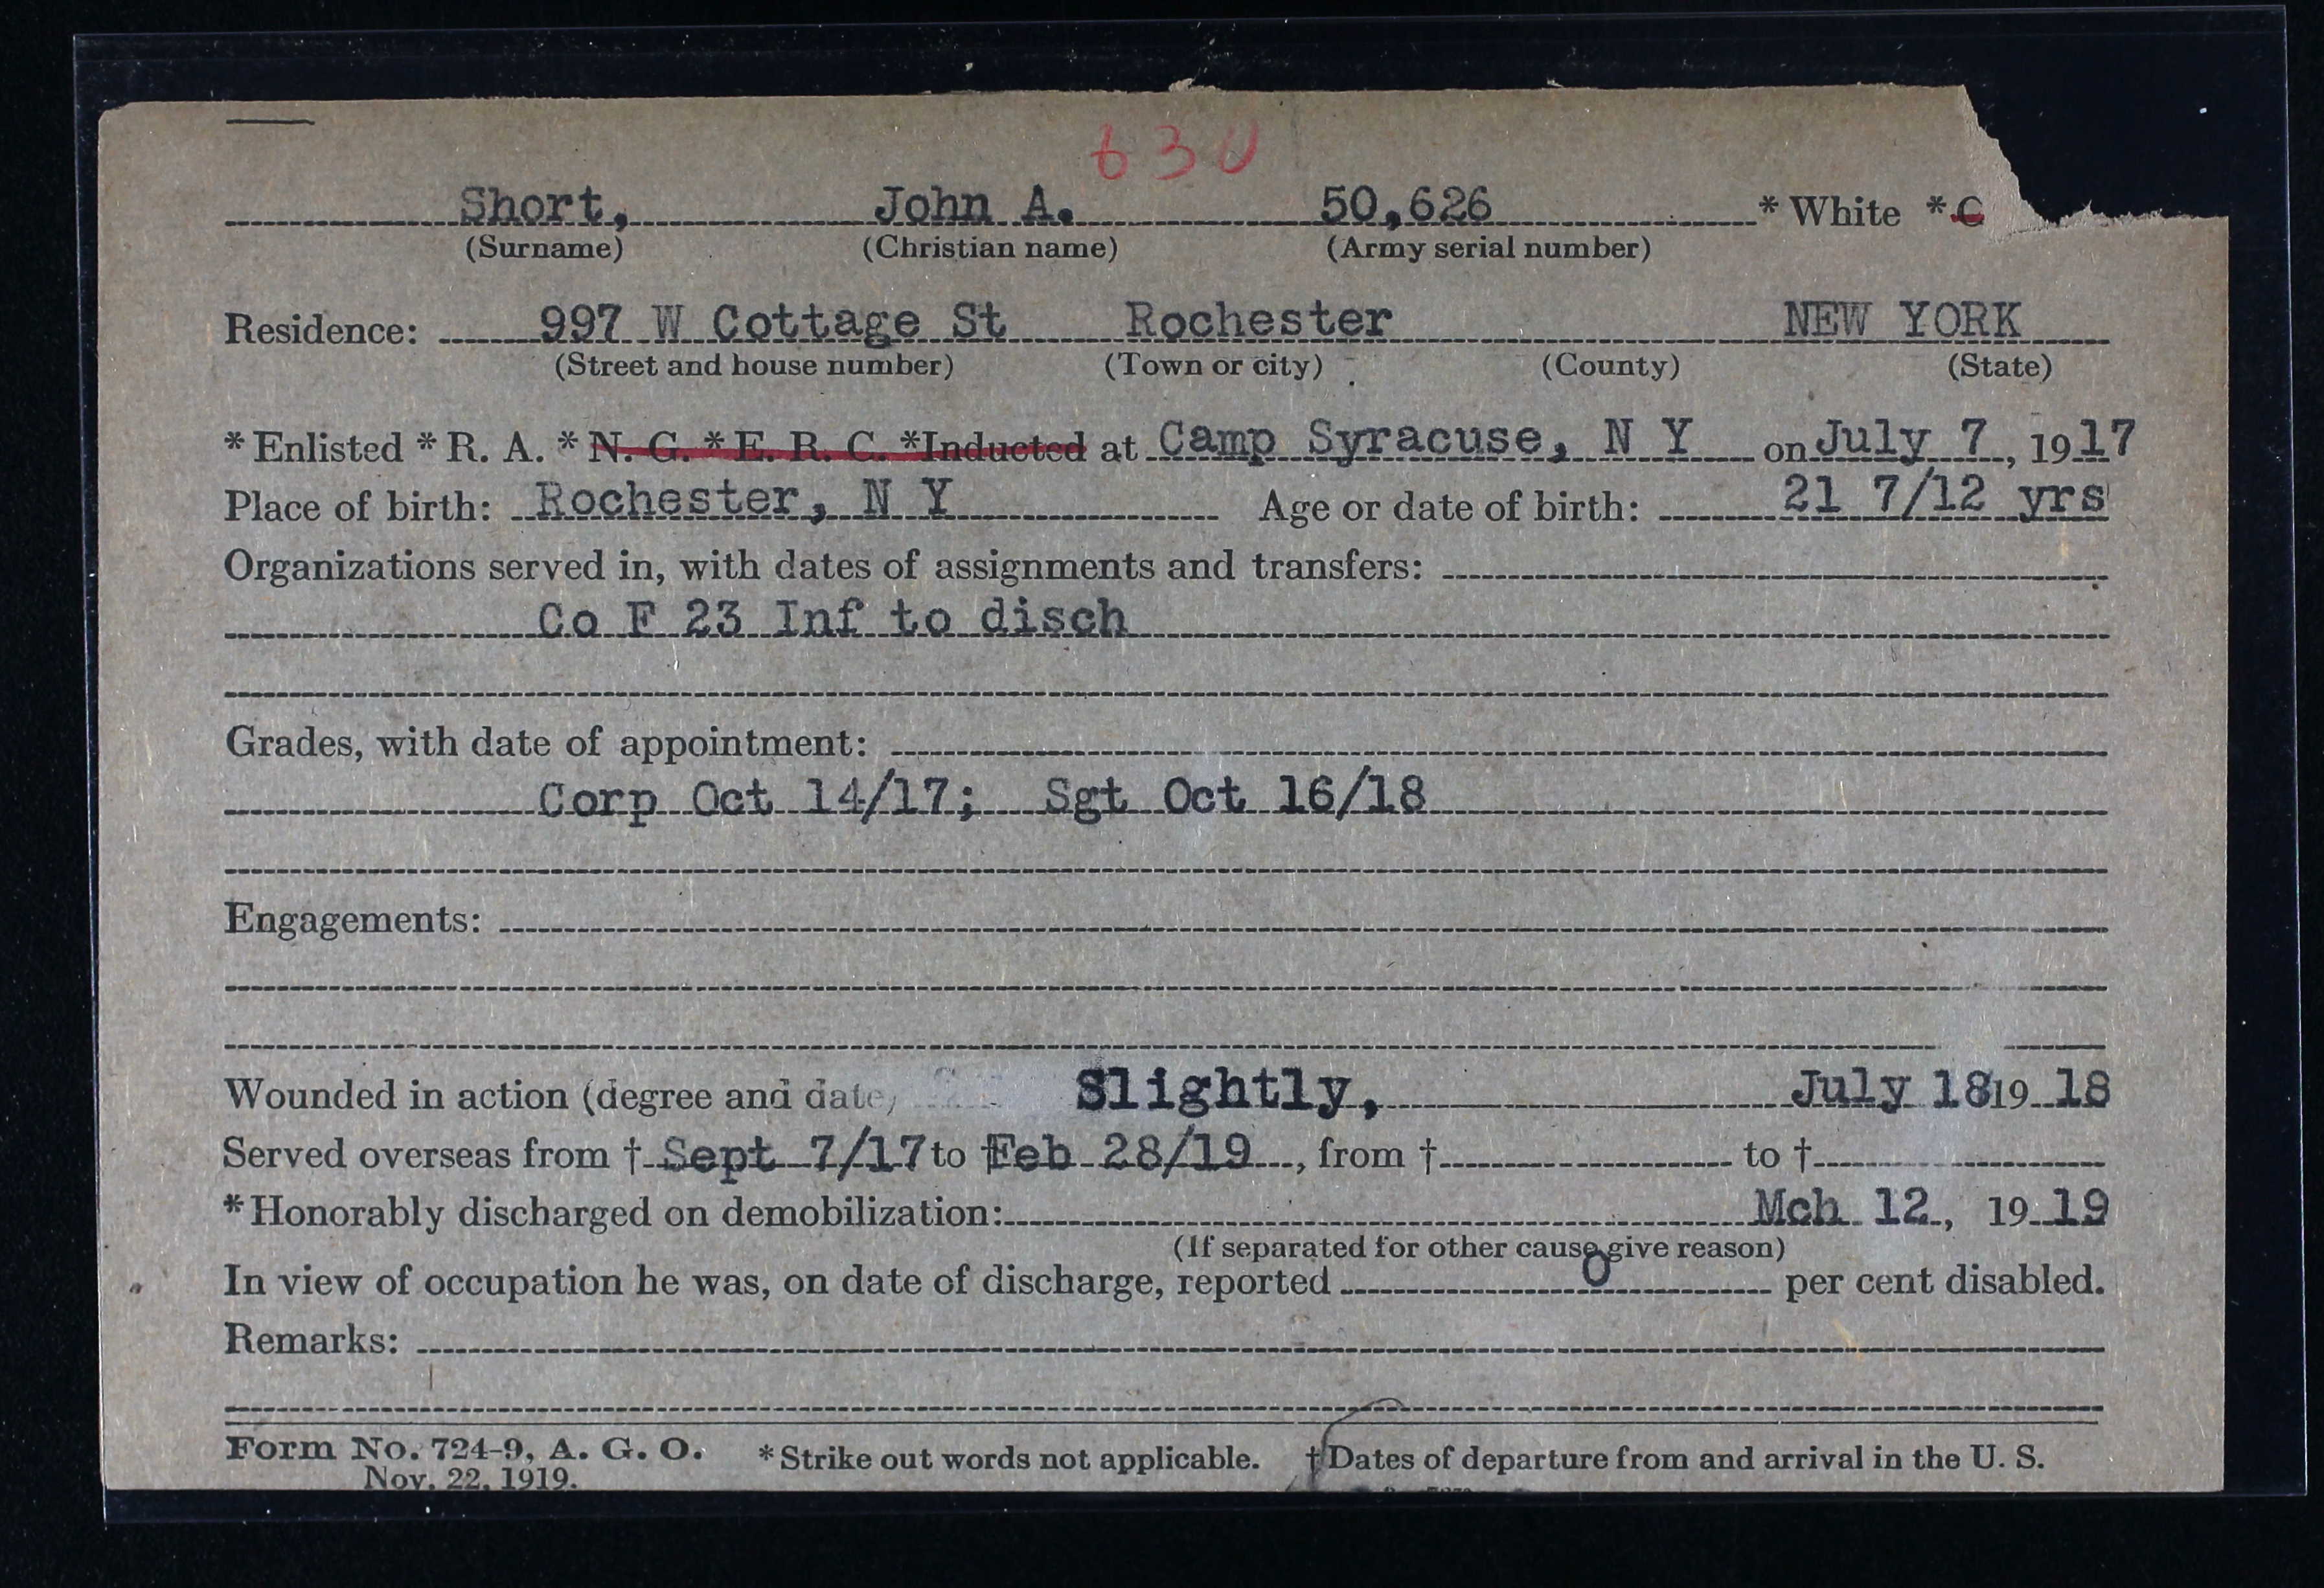 630
Short, John A. 50,626 * White * C
(Surname) (Christian name) (Army serial number)
Residence: 997 W Cottage St Rochester NEW YORK
(Street and house number) (Town or city) (County) (State)
* Enlisted * R. A. * N. G. * E. R. C. *Inducted at Camp Syracuse, N Y on July 7, 1917
Place of birth: Rochester, N Y Age or date of birth: 21 7/12 yrs
Organizations served in, with dates of assignments and transfers:
Co F 23 Inf to disch
Grades, with date of appointment:
Corp Oct 14/17; Sgt Oct 16/18
Engagements:
Wounded in action (degree and date) Slightly, July 18 1918
Served overseas from † Sept 7/17 to † Feb 28/19, from † to †
* Honorably discharged on demobilization: Mch 12, 1919
(If separated for other cause give reason)
In view of occupation he was, on date of discharge, reported 0 per cent disabled.
Remarks:
Form No. 724-9, A. G. O. * Strike out words not applicable. † Dates of departure from and arrival in the U. S.
Nov. 22, 1919.